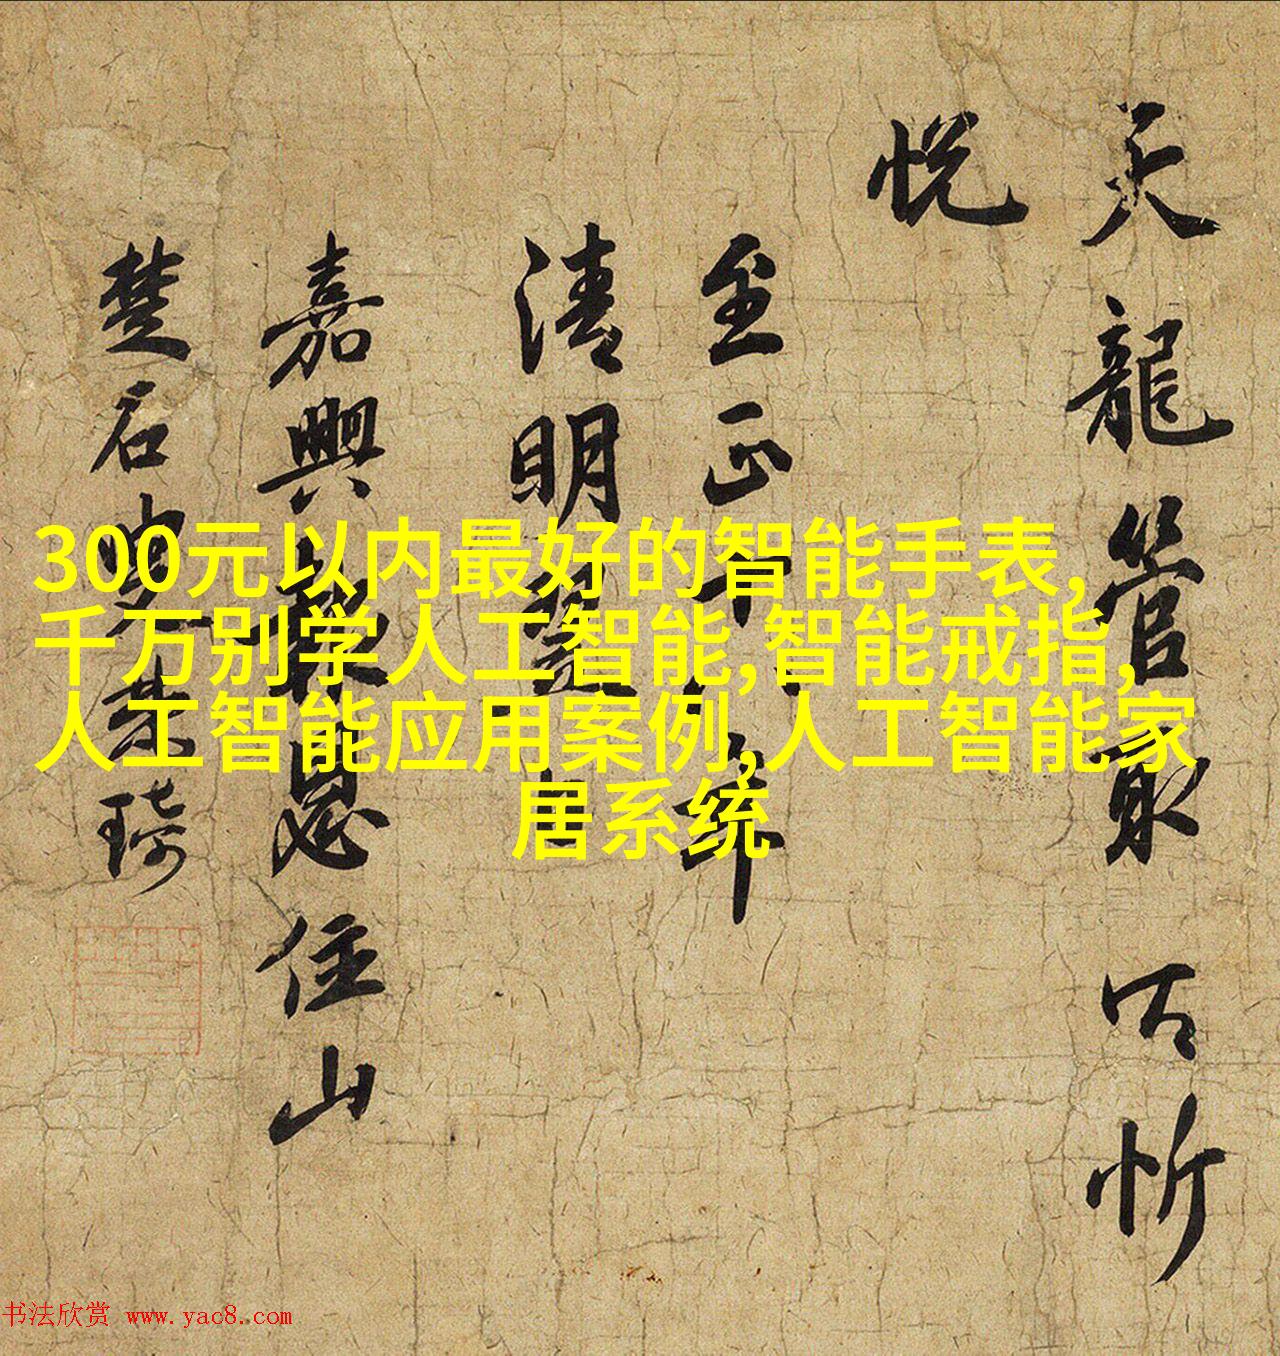 天龍管取以忻
悅
至正十年
清明
嘉興報恩住山
楚石叟梵琦
300元以内最好的智能手表,
千万别学人工智能,智能戒指,
人工智能应用案例,人工智能家
居系统
书法欣赏 www.yac8.com